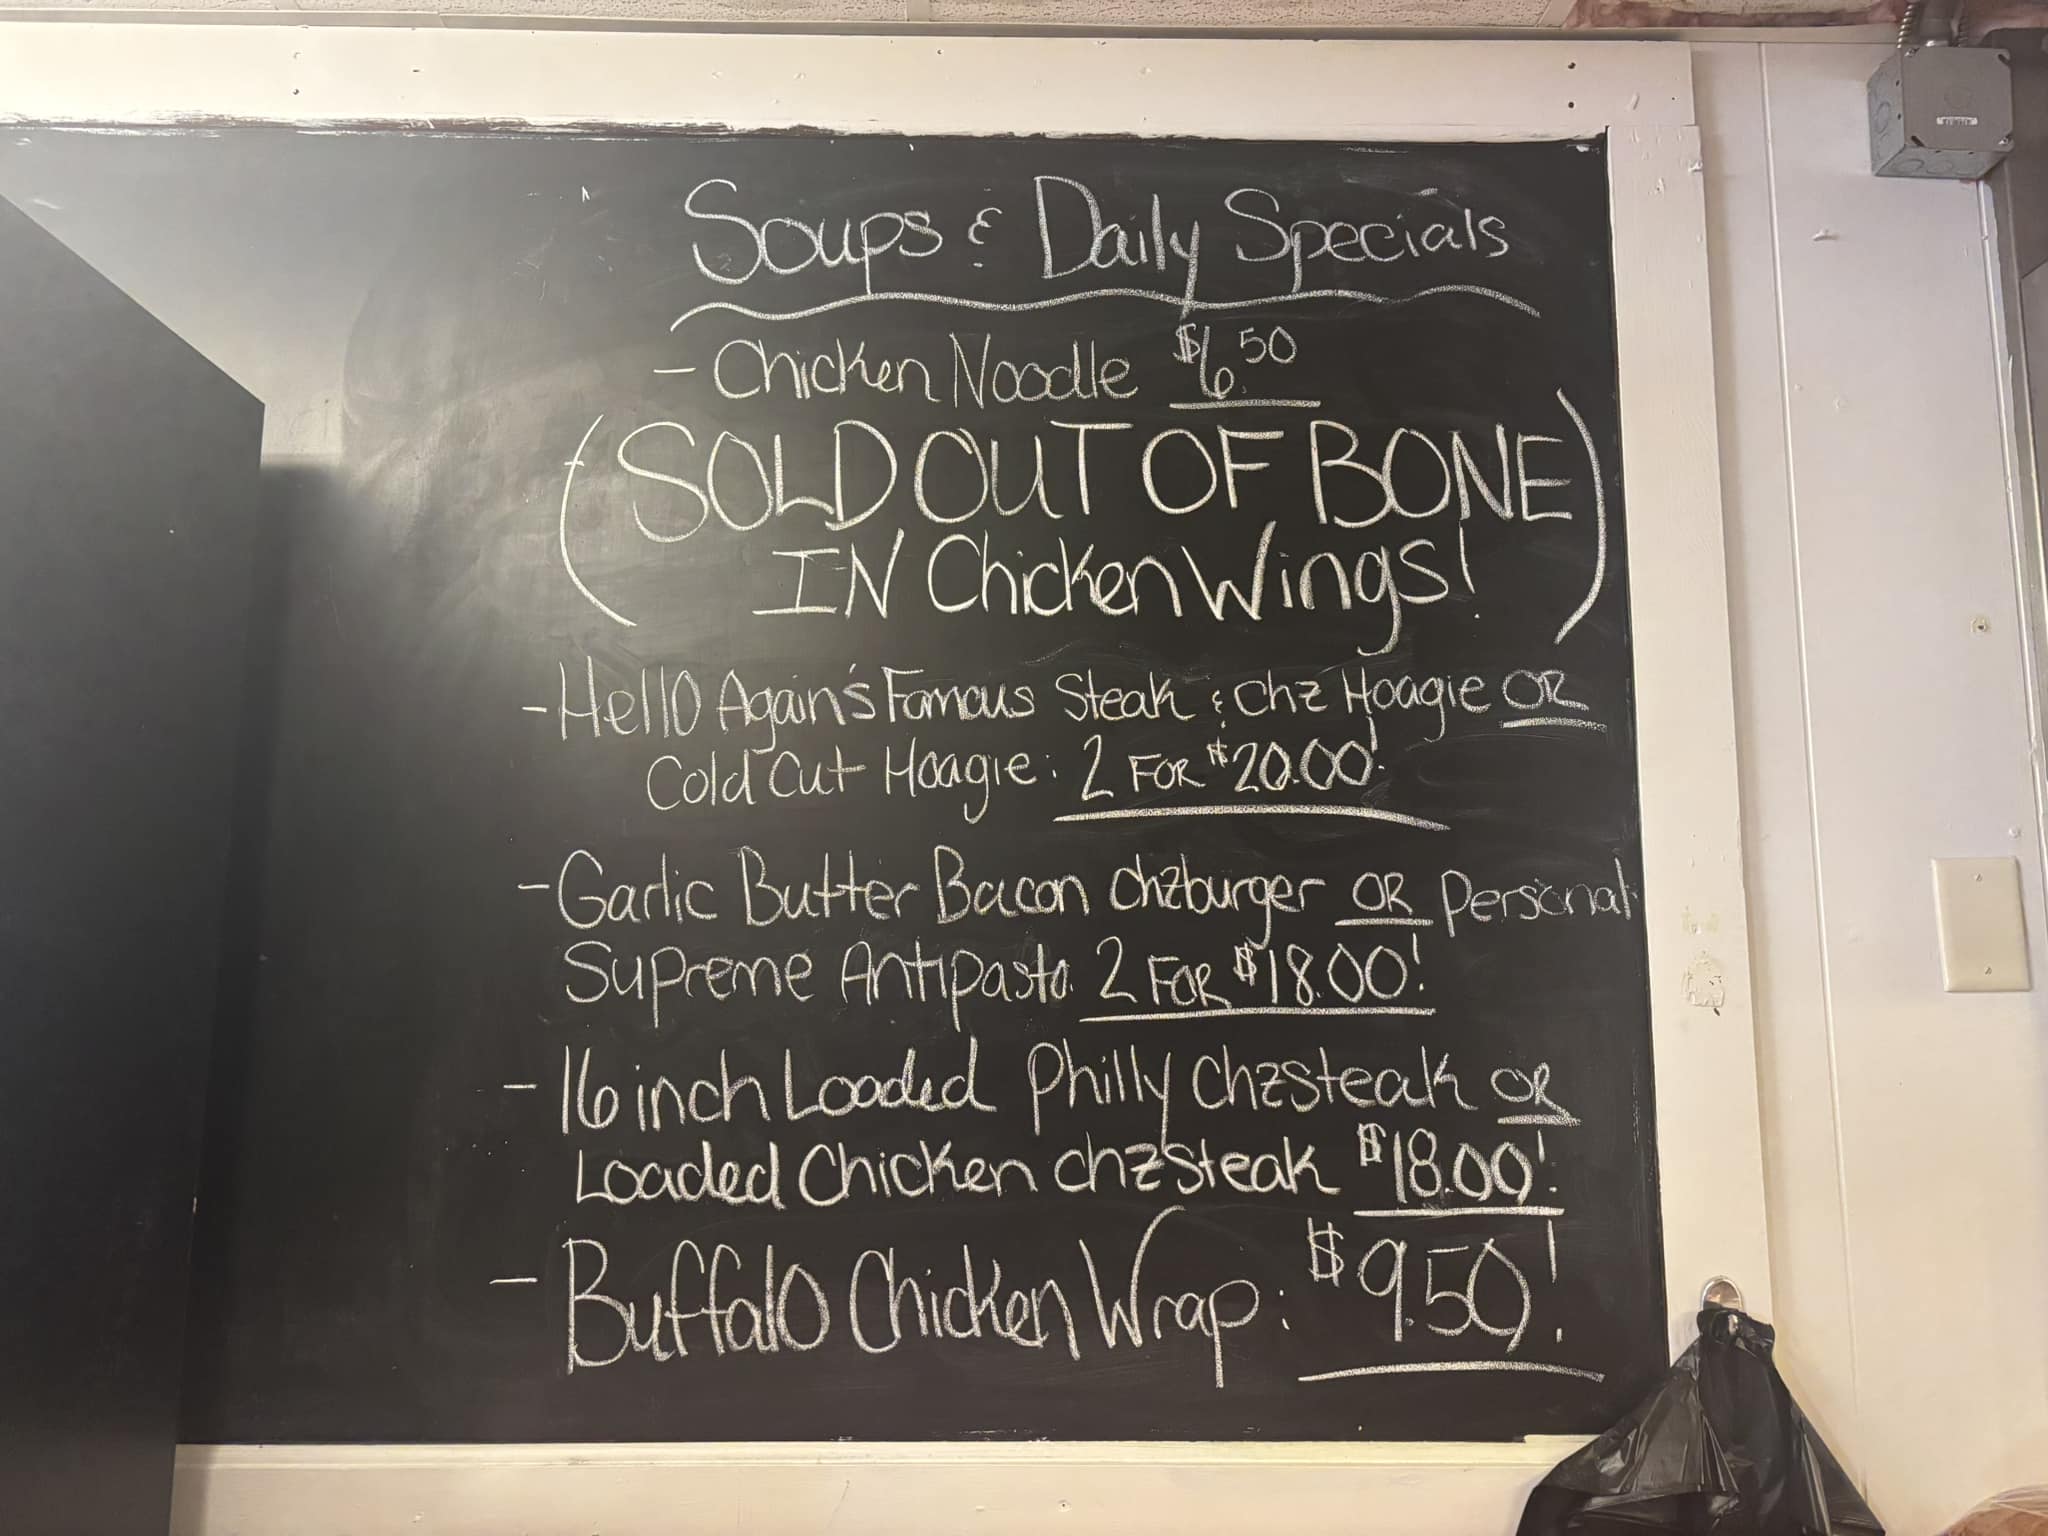 Soups & Daily Specials
- Chicken Noodle $6.50
(SOLD OUT OF BONE
IN Chicken Wings!)
- Hello Again's Famous Steak & Chz Hoagie OR
Cold Cut Hoagie: 2 FOR $20.00!
- Garlic Butter Bacon chzburger OR Personal
Supreme Antipasto. 2 FOR $18.00!
- 16 inch Loaded Philly Chzsteak OR
Loaded Chicken chzsteak $18.00!
- Buffalo Chicken Wrap: $9.50!